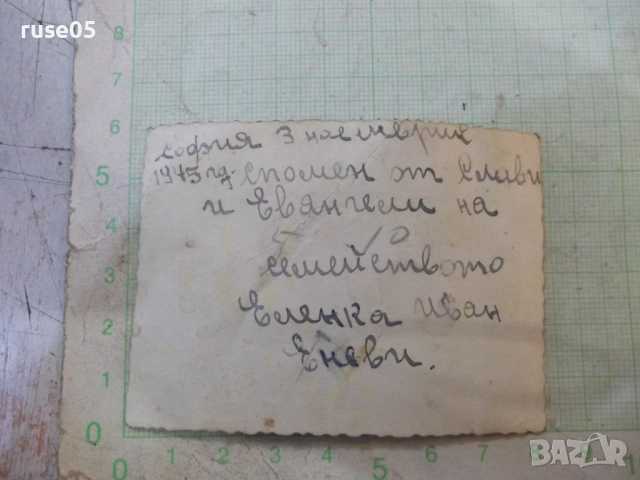 ruse05
София 3 ноемврие
1945 гд спомен от Слави
и Евангели на
5 10
семейството
Еленка Иван
Еневи.
8
6
5
4
3
2
1
0
0 1 2 3 4 5 6 7 8 9 1
BAZAR